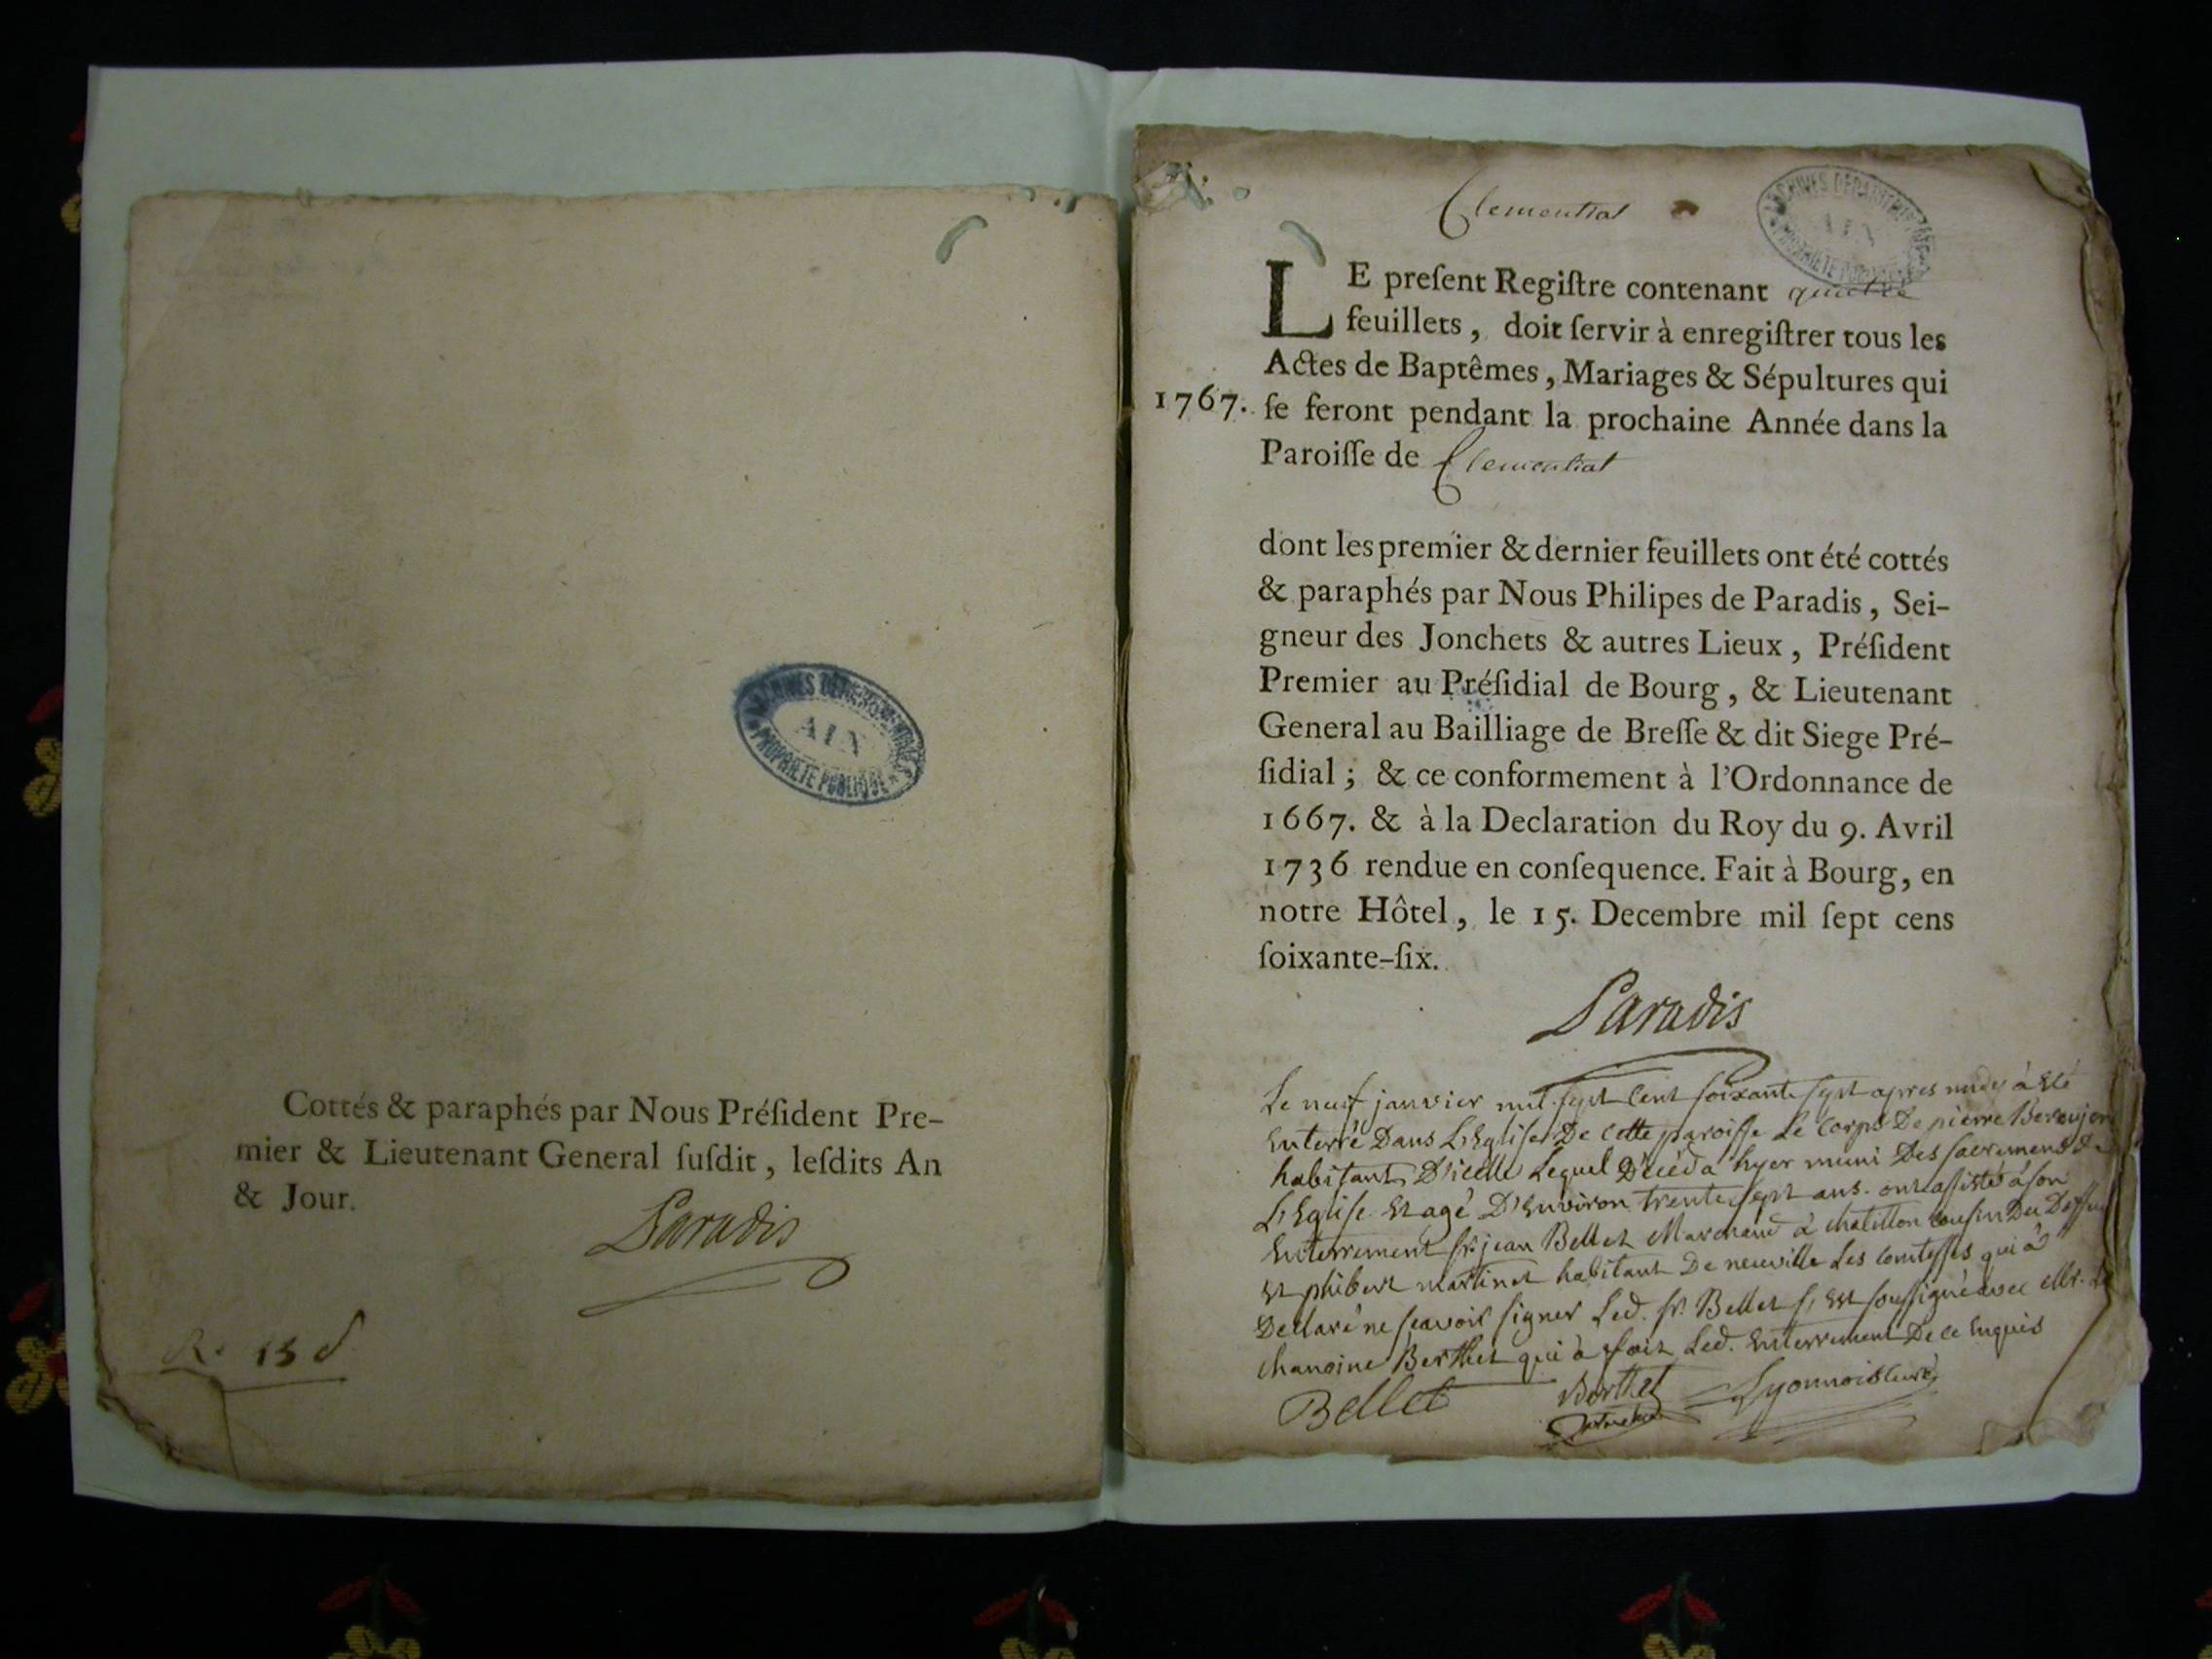 ARCHIVES DEPARTEMENTALES
AIN
PROPRIETE PUBLIQUE
Cottés & paraphés par Nous Préſident Pre-
mier & Lieutenant General ſuſdit, leſdits An
& Jour.
Paradis
R. 15 d
Clementiat
ARCHIVES DEPARTEMENTALES
AIN
PROPRIETE PUBLIQUE
LE preſent Regiſtre contenant quatre
feuillets, doit ſervir à enregiſtrer tous les
Actes de Baptêmes, Mariages & Sépultures qui
1767. ſe feront pendant la prochaine Année dans la
Paroiſſe de Clementiat
dont les premier & dernier feuillets ont été cottés
& paraphés par Nous Philipes de Paradis, Sei-
gneur des Jonchets & autres Lieux, Préſident
Premier au Préſidial de Bourg, & Lieutenant
General au Bailliage de Breſſe & dit Siege Pré-
ſidial ; & ce conformement à l'Ordonnance de
1667. & à la Declaration du Roy du 9. Avril
1736 rendue en conſequence. Fait à Bourg, en
notre Hôtel, le 15. Decembre mil ſept cens
ſoixante-ſix.
Paradis
Le neuf janvier mil sept cent soixante sept apres midy à Eté
Enterré Dans L'Eglise De cette paroisse Le Corps De pierre
habitant D'icelle Lequel Décéda hyer muni Des sacrements De
L'Eglise Et agé D'Environ trente sept ans. ont assisté à son
Enterrement sr. jean Bellet Marchand à chatillon cousin Du
Et phibert martinet habitant De neuville Les comtesses qui à
Declaré ne scavoir signer Led. sr. Bellet s'est soussigné avec Mr. Le
chanoine Berthet qui à fait Led. Enterrement De ce Enquis
Bellet Berthet Lyonnois curé